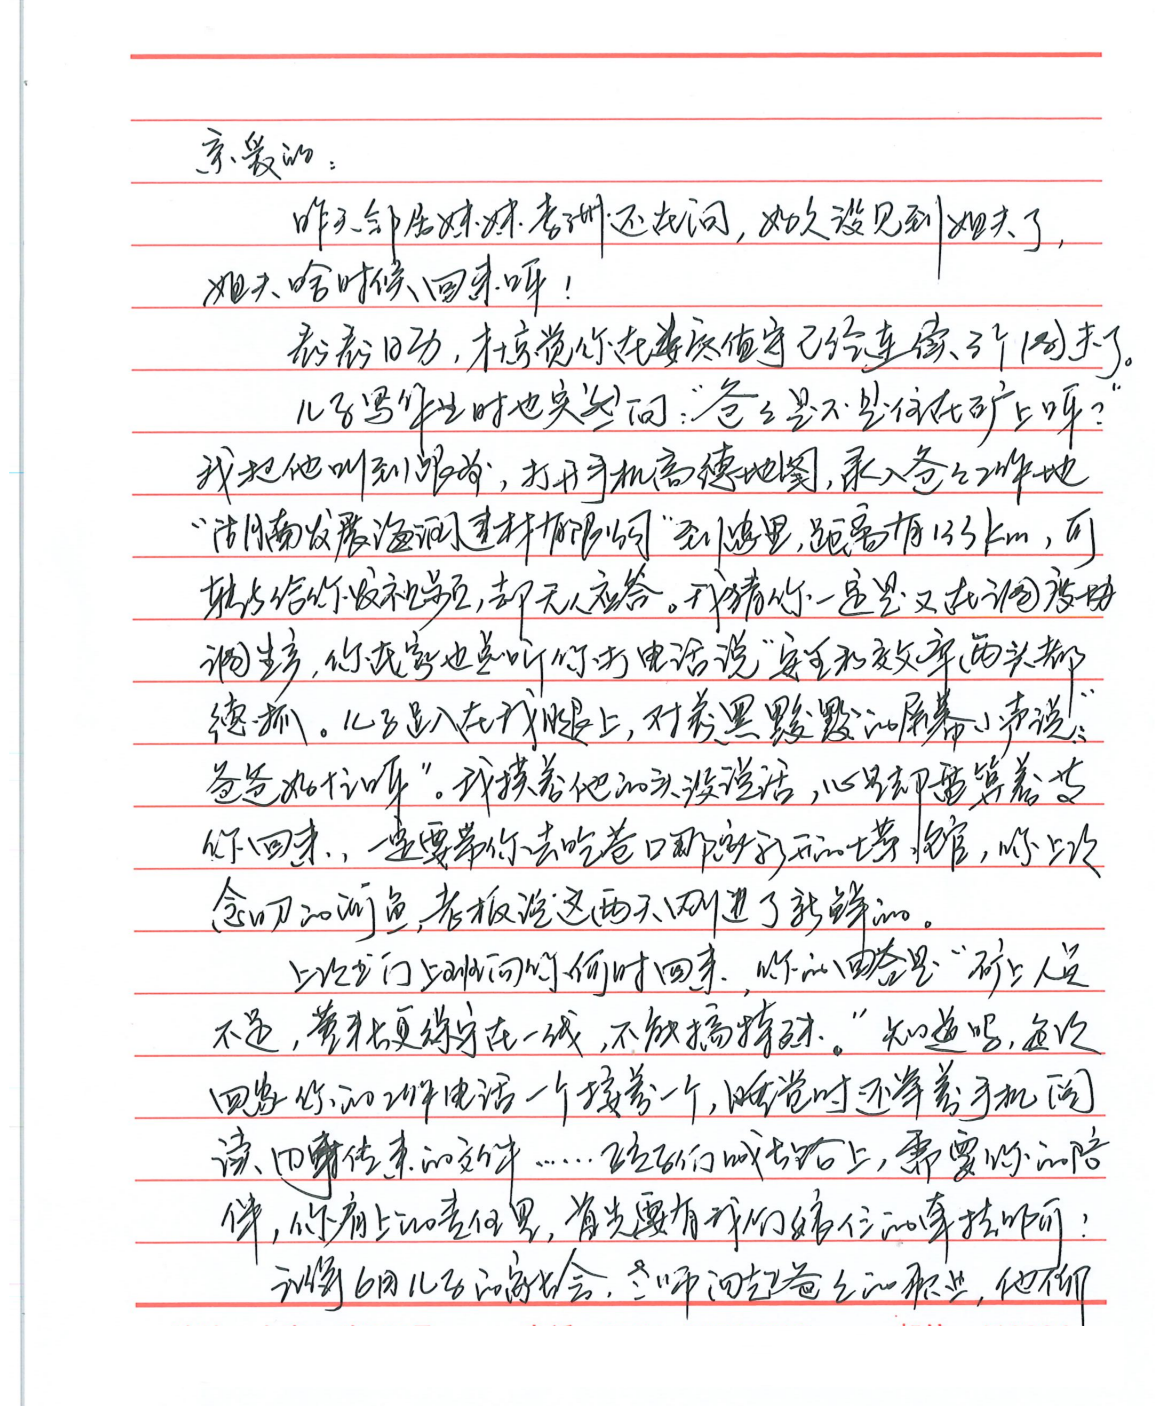 亲爱的：
昨天邻居妹妹李洲还在问，好久没见到姐夫了，
姐夫啥时候回来呀！
看看日历，才惊觉你在娄底值守已经连续三个周末了。
儿子写作业时也突然问：“爸爸是不是住在矿上呀？”
我把他叫到跟前，打开手机高德地图，录入爸爸工作地
“湖南发展海润建材有限公司”到家里，距离有133km，可
转头给你发视频，却无人应答。我猜你一定是又在调度协
调生产，你在家也总听你打电话说“安全和效率两头都
得抓。儿子趴在我腿上，对着黑黢黢的屏幕小声说：“
爸爸好忙呀”。我摸着他的头没说话，心里却盘算着等
你回来，一定要带你去吃巷口那家新开的土菜馆，你上次
念叨的河鱼，老板说这两天刚进了新鲜的。
上次出门上班问你何时回来，你的回答是“矿上人员
不足，董事长更得守在一线，不能搞特殊。”知道吗，每次
回家你的工作电话一个接着一个，睡觉时还举着手机阅
读、回复传来的文件……孩子们成长路上，需要你的陪
伴，你肩上的责任里，首先要有我们娘仨的牵挂即可！
记得6月儿子的家长会，老师问起爸爸的职业，他仰